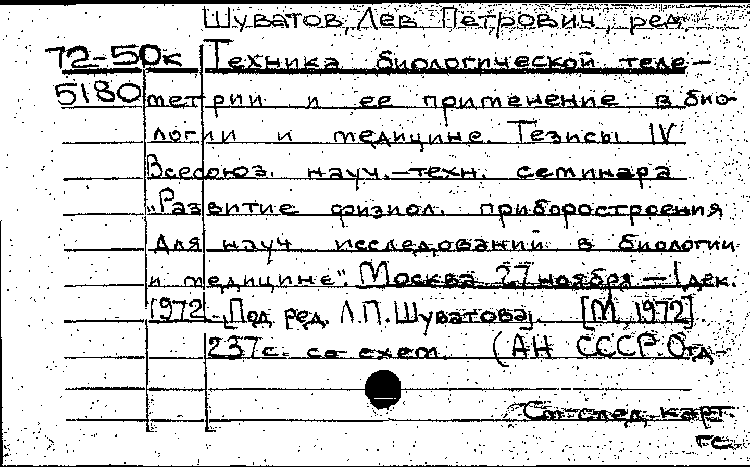 Шуватов, Лев Петрович, ред.
72-50к Техника биологической теле-
5180 метрии и ее применение в био-
логии и медицине. Тезисы IV
Всесоюз. науч.-техн. семинара
„Развитие физиол. приборостроения
для науч исследований в биологии
и медицине". Москва 27 ноября — 1 дек.
1972. [Под ред. Л.П. Шуватова]. [М., 1972].
237с. со схем. (АН СССР. Отд-
См. след. карт.